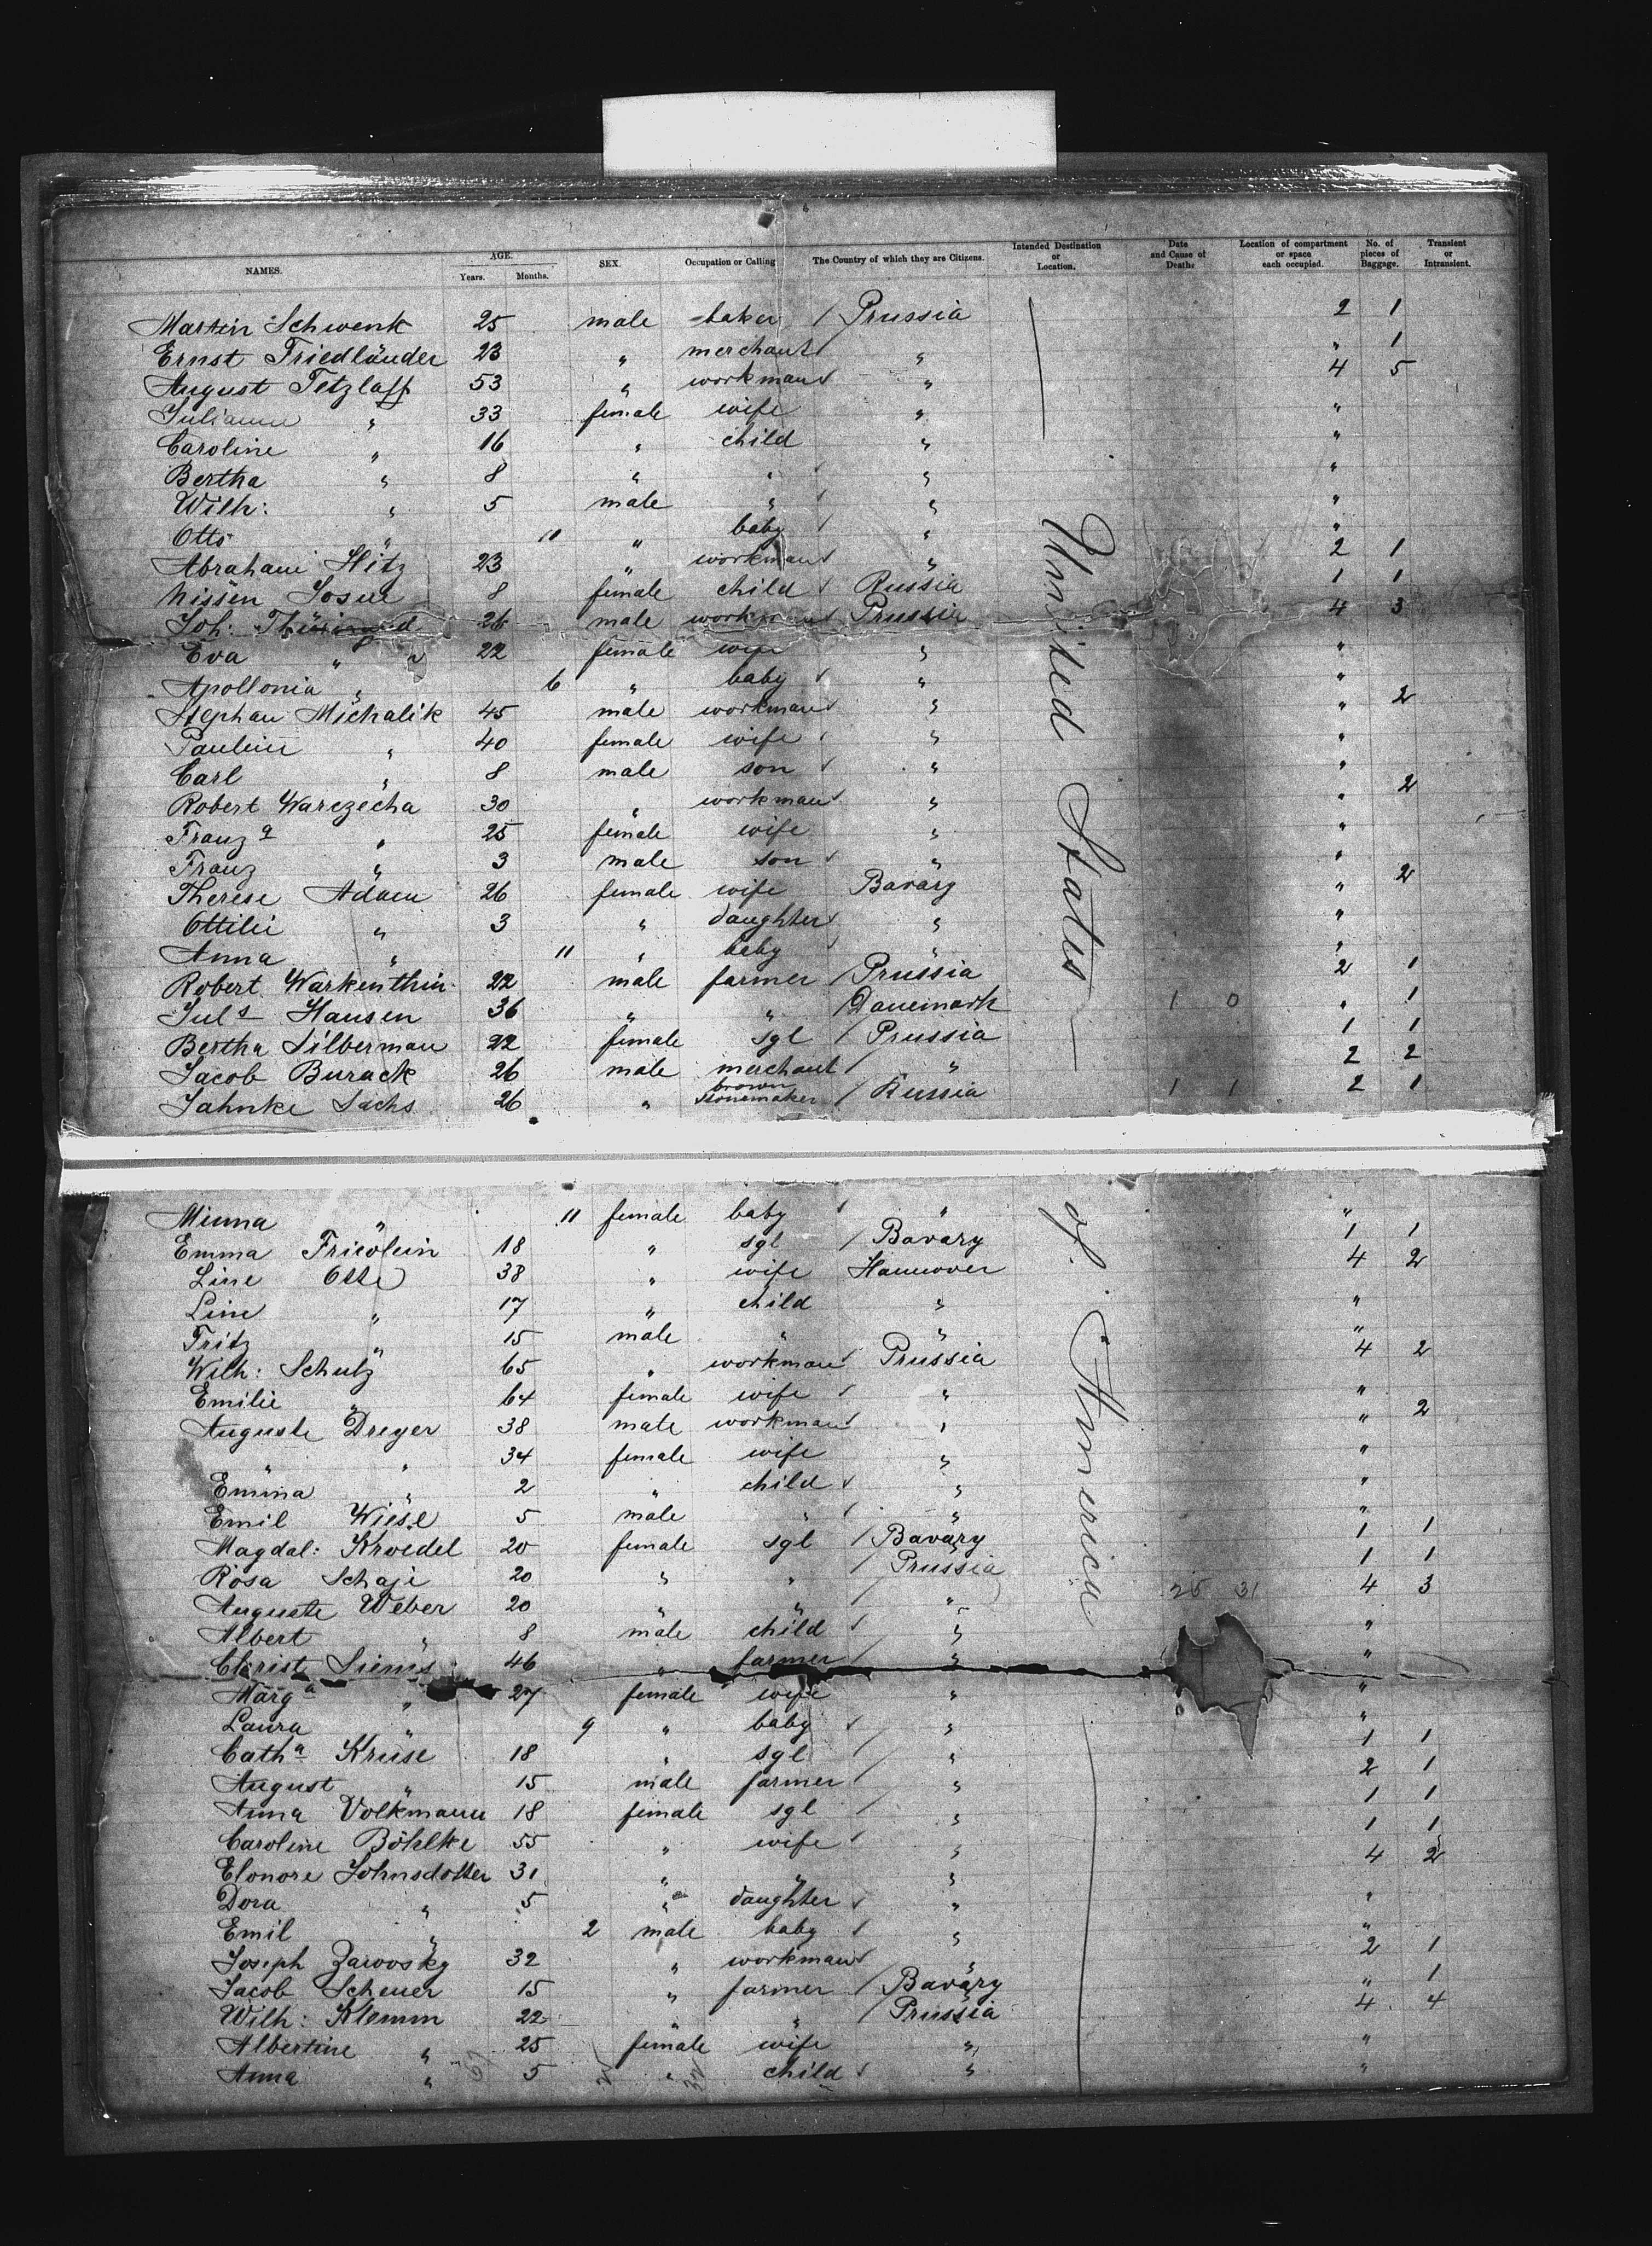 NAMES. AGE. Years. Months. SEX. Occupation or Calling The Country of which they are Citizens. Intended Destination or Location. Date and Cause of Deaths Location of compartment or space each occupied. No. of pieces of Baggage. Transient or Intransient.
Martin Schwenk 25 male baker / Prussia 2 1
Ernst Friedländer 23 " merchant " " 1
August Tetzlaff 53 " workman " 4 5
Julianne " 33 female wife " "
Caroline " 16 " child " "
Bertha " 8 " " " "
Wilh: " 5 male " " "
Otto " 11 " baby " "
Abraham Hitz 23 " workman " 2 1
Nissen Josue 8 female child Russia 1 1
Joh: 26 male workman Prussia 4 3
Eva " 22 female wife " "
Apollonia " 6 " baby " "
Stephan Michalik 45 male workman " " 2
Pauline " 40 female wife " "
Carl " 8 male son " "
Robert Warczecha 30 " workman " " 2
Franza " 25 female wife " "
Franz " 3 male son " "
Therese Adam 26 female wife Bavary " 2
Ottilie " 3 " daughter " "
Anna " 11 " baby " "
Robert Warkenthin 22 male farmer / Prussia 2 1
Juls Hansen 36 " " / Danemark 1 0 " 1
Bertha Silberman 22 female sgl / Prussia 1 1
Jacob Burack 26 male merchant / " 2 2
Jahnke Sachs 26 " brown stonemaker / Russia 1 1 2 1
United States
Minna " 11 female baby " "
Emma Fricolein 18 " sgl / Bavary 1 1
Line Otte 38 " wife Hannover 4 2
Line " 17 " child " "
Fritz " 15 male " " "
Wilh: Schulz 65 " workman Prussia 4 2
Emilie " 64 female wife " "
Auguste Dreyer 38 male workman " " 2
" " 34 female wife " "
Emma " 2 " child " "
Emil Wiese 5 male " " "
Magdal: Kroedel 20 female sgl / Bavary 1 1
Rosa Schaje 20 " " / Prussia 1 1
Auguste Weber 20 " " / " 25 31 4 3
Albert " 8 male child " "
Christ Siems 46 " farmer / " "
Marga " 27 female wife " "
Laura " 9 " baby " "
Catha Kruse 18 " sgl / " 1 1
August " 15 male farmer / " 2 1
Anna Volkmann 18 female sgl / " 1 1
Caroline Böhlke 55 " wife " 1 1
Elonore Johnsdotter 31 " " " 4 2
Dora " 5 " daughter " "
Emil " 2 male baby " "
Joseph Zawosky 32 " workman " 2 1
Jacob Scheuer 15 " farmer / Bavary " 1
Wilh: Klemm 22 " " / Prussia 4 4
Albertine " 25 female wife " "
Anna " 5 " child " "
of America